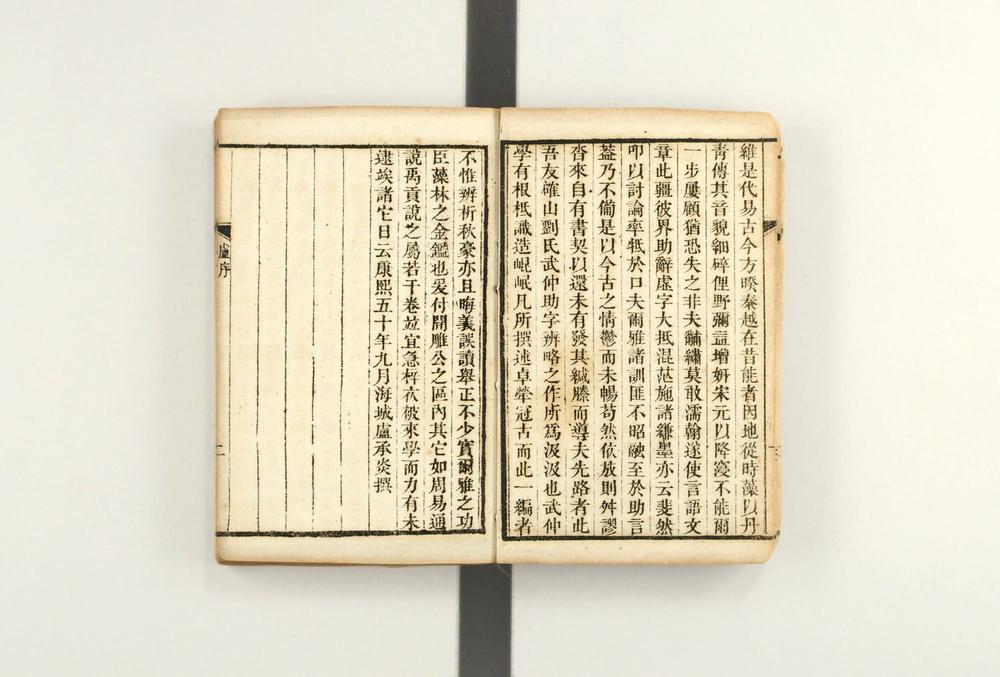 雖是代易古今方暌秦越在昔能者因地從時藻以丹
靑傳其音貌細碎俚野彌益增姸宋元以降寖不能爾
一步屢顧猶恐失之非夫黼繡莫敢濡翰遂使言語文
章此疆彼界助辭虛字大抵混茫施諸縑墨亦云斐然
叩以討論率牴於口夫爾雅諸訓匪不昭融至於助言
葢乃不僃是以今古之情鬱而未暢苟然依放則舛謬
沓來自有書契以還未有發其緘縢而導夫先路者此
吾友確山劉氏武仲助字辨略之作所爲汲汲也武仲
學有根柢識造崐㟭凡所撰述卓犖冠古而此一編者
不惟辨析秋豪亦且晦義誤讀舉正不少實爾雅之功
臣藻林之金鑑也爰付開雕公之區內其它如周易通
說禹貢說之屬若干卷竝宜急梓衣被來學而力有未
逮竢諸它日云康熙五十年九月海城盧承炎撰
盧序
二